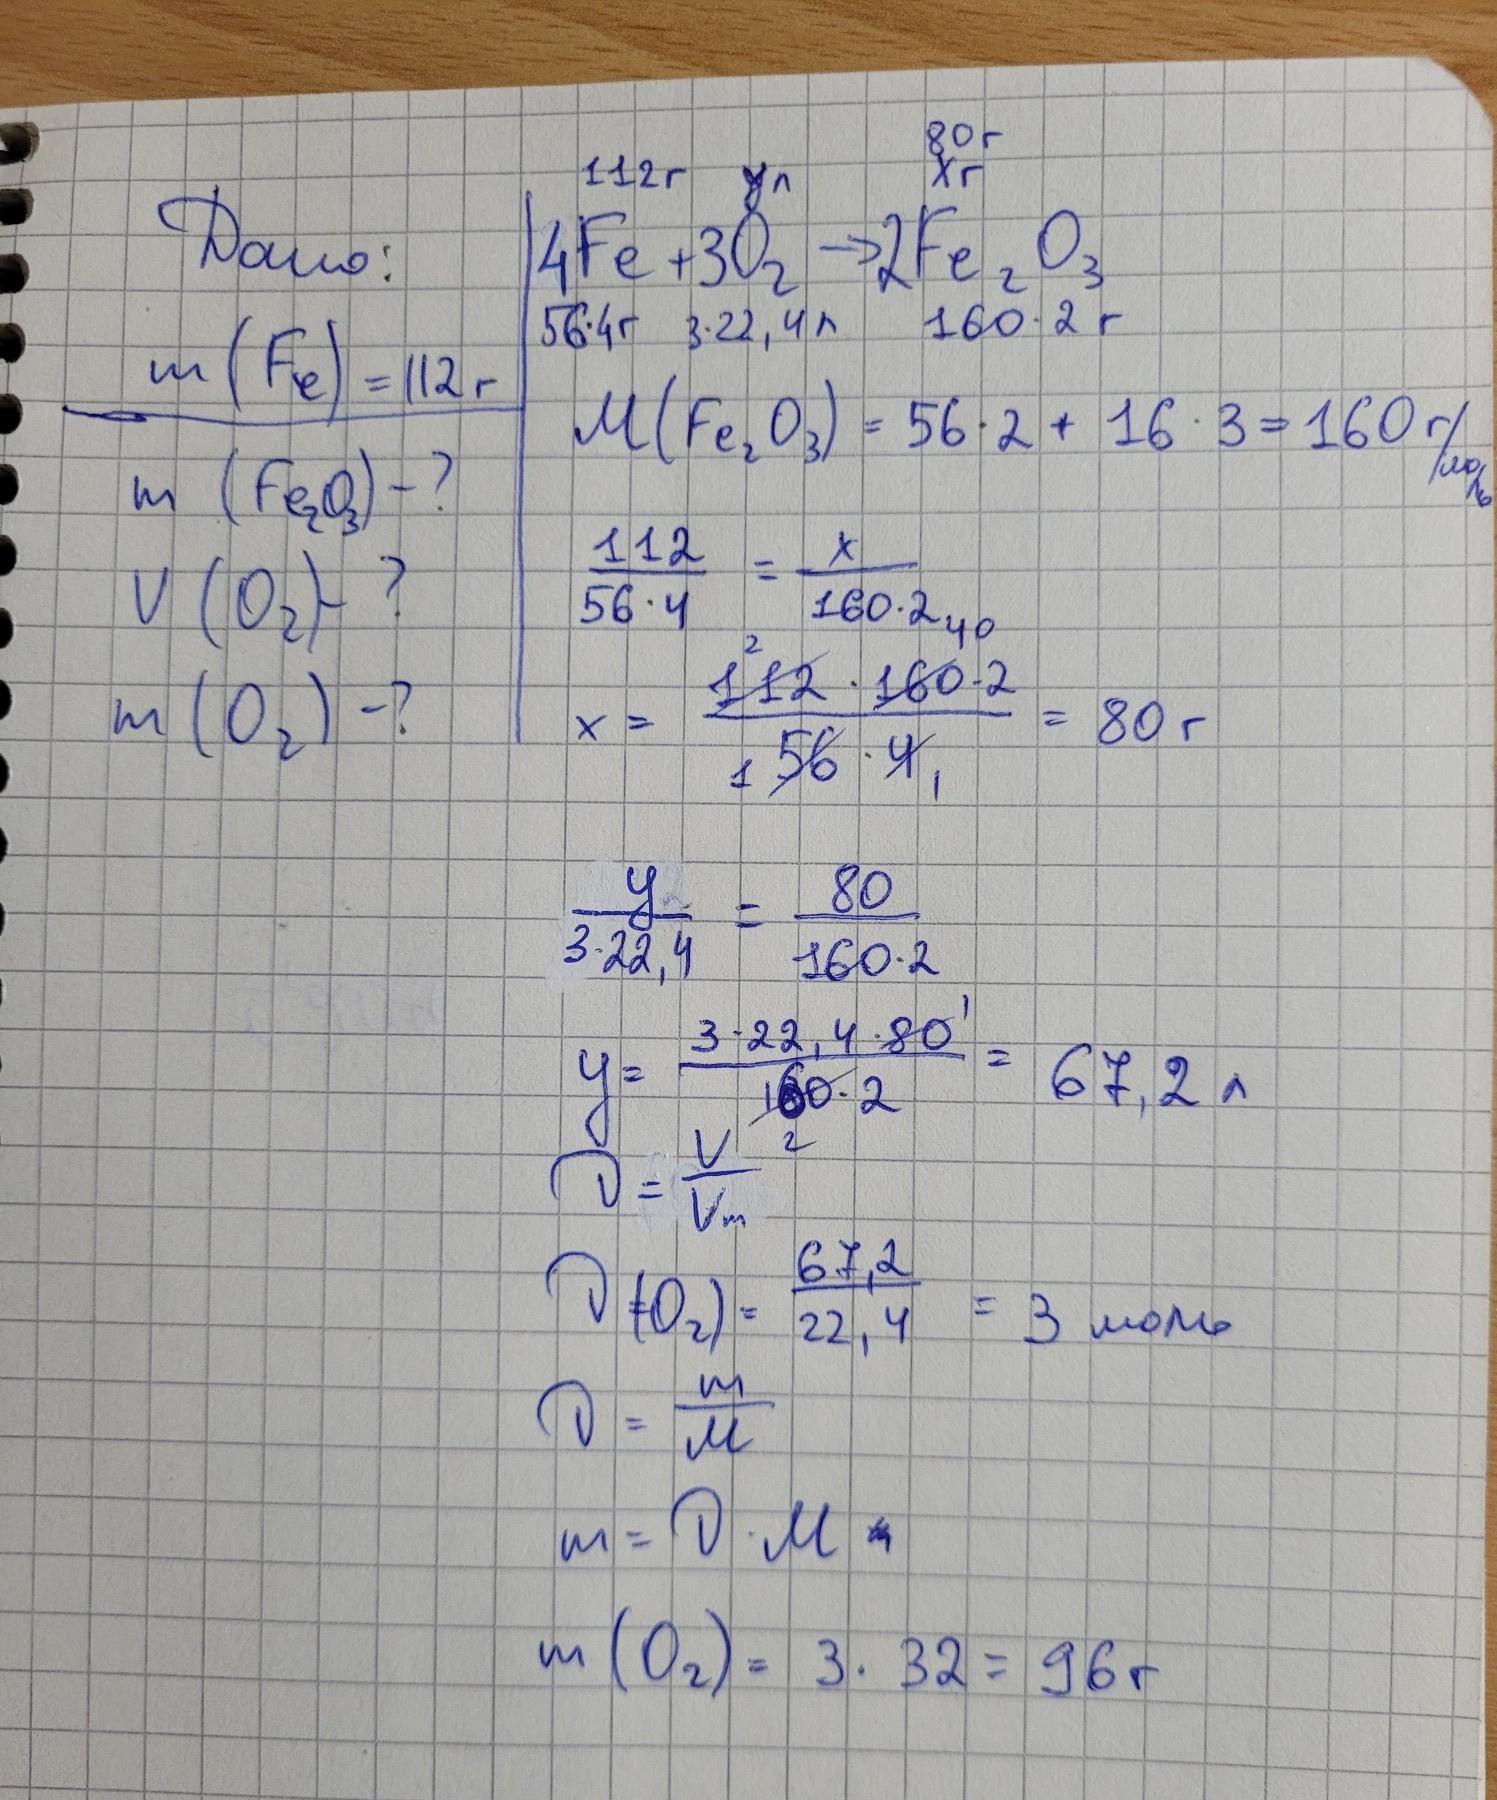 Дано:
m (Fe) = 112 г
m (Fe₂O₃) - ?
V (O₂) - ?
m (O₂) - ?
80 г
112 г y л x г
4Fe + 3O₂ → 2Fe₂O₃
56·4 г 3·22,4 л 160·2 г
M (Fe₂O₃) = 56·2 + 16·3 = 160 г/моль
112/56·4 = x/160·2
2 40
x = 112·160·2/56·4 = 80 г
1 1
y/3·22,4 = 80/160·2
1
y = 3·22,4·80/160·2 = 67,2 л
2
ν = V/Vm
ν (O₂) = 67,2/22,4 = 3 моль
ν = m/M
m = ν · M
m (O₂) = 3·32 = 96 г